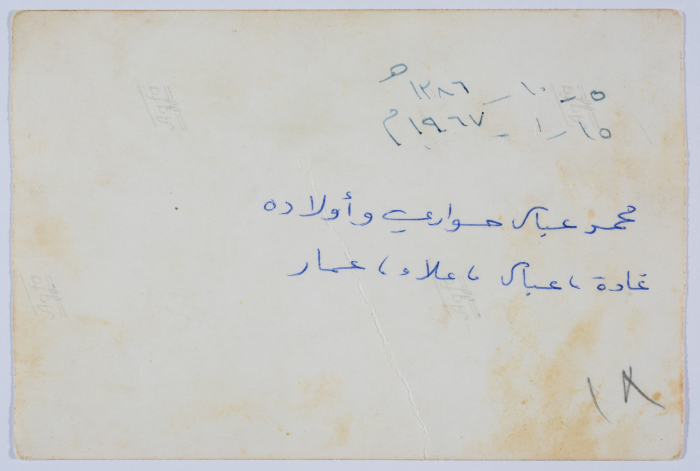 ٥ - ١٠ - ١٣٨٦ هـ
١٥ - ١ - ١٩٦٧ م
محمد عباس حواري وأولاده
غادة، عباس، علاء، عمار
١٨